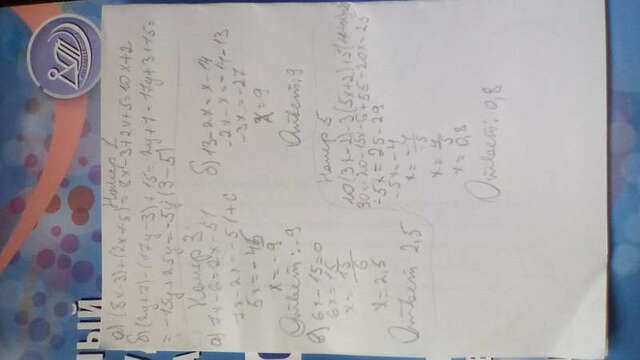 НЫЙ
Номер 2
а) (8x-3)+(2x+5)=8x-3+2x+5=10x+2
б) (2y+7)-(17y-3)+15=2y+7-17y+3+15=
=-15y+25y=-5y(3-5)
Номер 3
а) 7x-6=2x-51
7x-2x=-51+6
5x=-45
x=-9
Ответ:-9
б) 13-2x=x-14
-2x-x=-14-13
-3x=-27
x=9
Ответ:9
в) 6x-15=0
6x=15
x=15/6
x=2,5
Ответ 2,5
Номер 5
10(3x-2)-3(5x+2)+5(
-5x=25-29
-5x=-4
x=-4/-5
x=4/5
x=0,8
Ответ:0,8